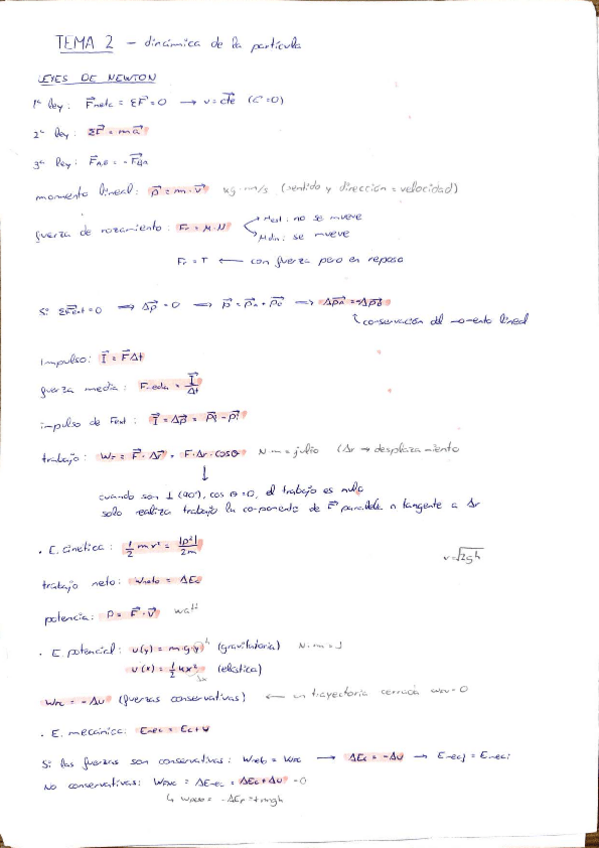 TEMA 2 - dinámica de la partícula
LEYES DE NEWTON
1ª ley: F⃗neta = ΣF⃗ = 0 → v = cte (C=0)
2ª ley: ΣF⃗ = m a⃗
3ª ley: F⃗AB = -F⃗BA
momento lineal: p⃗ = m · v⃗ kg · m/s (sentido y dirección = velocidad)
fuerza de rozamiento: Fr = μ · N
μest: no se mueve
μdin: se mueve
Fr = T ← con fuerza pero en reposo
Si ΣF⃗ext = 0 → Δp⃗ = 0 → p⃗ = p⃗A + p⃗B → Δp⃗A = -Δp⃗B
conservación del momento lineal
impulso: I⃗ = F⃗Δt
fuerza media: Fmedia = I⃗/Δt
impulso de Fext: I⃗ = Δp⃗ = p⃗f - p⃗i
trabajo: WF = F⃗ · Δr⃗ = F · Δr · cosθ N·m = julio (Δr → desplazamiento
cuando son ⊥ (90º), cos θ = 0, el trabajo es nulo
solo realiza trabajo la componente de F⃗ paralela o tangente a Δr
· E. cinética: 1/2 mv² = |p²|/2m
v = √2gh
trabajo neto: Wneto = ΔEc
potencia: P = F⃗ · v⃗ watt
· E. potencial: u(y) = m g y h (gravitatoria) N·m = J
u(x) = 1/2 kx² (elástica)
Δx
WFC = -ΔU (fuerzas conservativas) ← en trayectoria cerrada = 0
· E. mecánica: Emec = Ec + U
Si las fuerzas son conservativas: Wneto = WFC → ΔEc = -ΔU → Emecf = Emeci
No conservativas: WFNC = ΔEmec = ΔEc + ΔU = 0